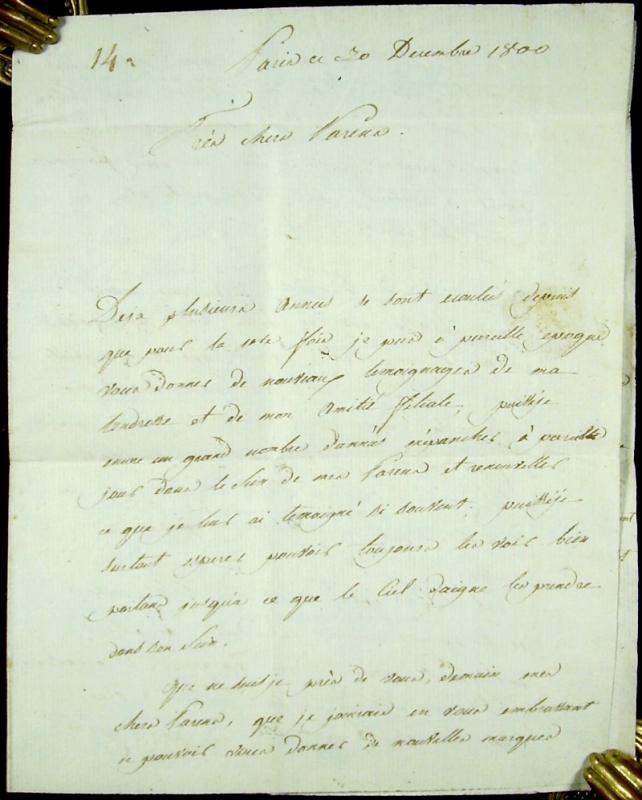 14
Paris ce 30 Decembre 1800
Très chers Parens.
Deja plusieurs annees se sont ecoulés depuis
que pour la 1ere fois je pus à pareille epoque
vous donner de nouveaux temoignages de ma
tendresse et de mon amitié filiale, puissje
encore un grand nombre d'années m'épancher à pareille
jour dans le sein de mes Parens et renouveller
ce que je leur ai temoigné si souvent. puissje
surtout esperer pouvoir toujours les voir bien
portans jusqu'à ce que le Ciel daigne les prendre
dans son sein.
Que ne suisje près de vous, demain mes
chers Parens, que je jouirais en vous embrassant
je pouvois vous donner de nouvelles marques